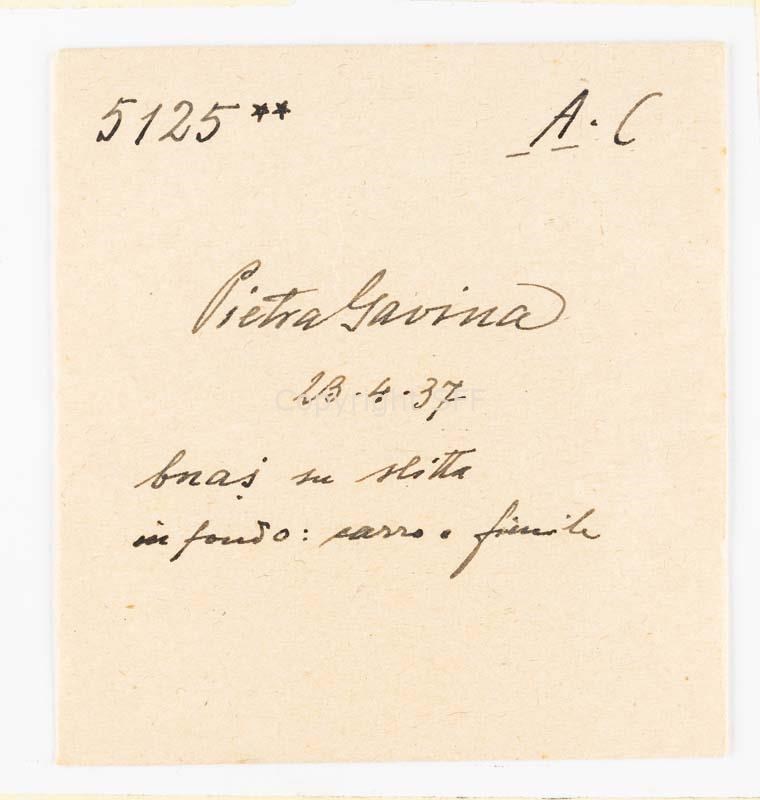 5125** A. C
Pietra Gavina
23.4.37
Copyright
su slitta
in fondo: carro e fienile